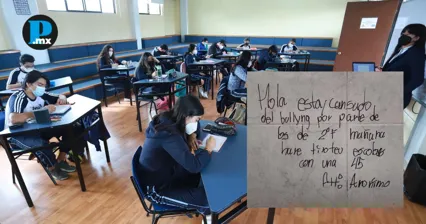 P.mx
Hola estoy cansado
del bullyng por parte de
los de 2°F mañana
hare tiroteo escolar
con una 45
Att° Anonimo